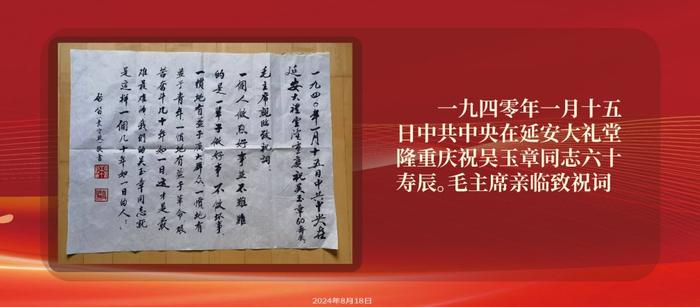 一九四〇年一月十五日中共中央在
延安大礼堂隆重庆祝吴玉章60寿辰
毛主席親临致祝词
一個人做点好事並不難 難
的是一輩子做好事 不做坏事
一慣地有益于廣大群众 一慣地有
益于青年 一慣地有益于革命 艰
苦奋斗几十年如一日 这才是最
难最难的 我們的吴玉章同志就
是这样一個几十年如一日的人!
一九四零年一月十五
日中共中央在延安大礼堂
隆重庆祝吴玉章同志六十
寿辰。毛主席亲临致祝词
2024年8月18日